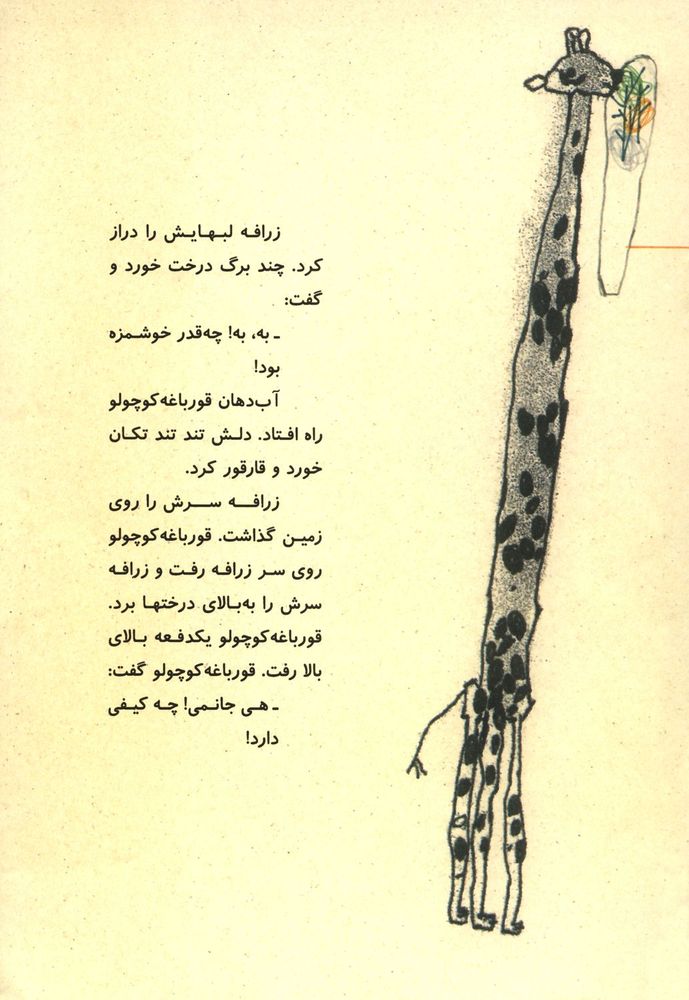 زرافه لبهایش را دراز
کرد. چند برگ درخت خورد و
گفت:
ـ به، به! چه‌قدر خوشمزه
بود!
آب‌دهان قورباغه‌کوچولو
راه افتاد. دلش تند تند تکان
خورد و قارقور کرد.
زرافه سرش را روی
زمین گذاشت. قورباغه‌کوچولو
روی سر زرافه رفت و زرافه
سرش را به‌بالای درختها برد.
قورباغه‌کوچولو یکدفعه بالای
بالا رفت. قورباغه‌کوچولو گفت:
ـ هی جانمی! چه کیفی
دارد!